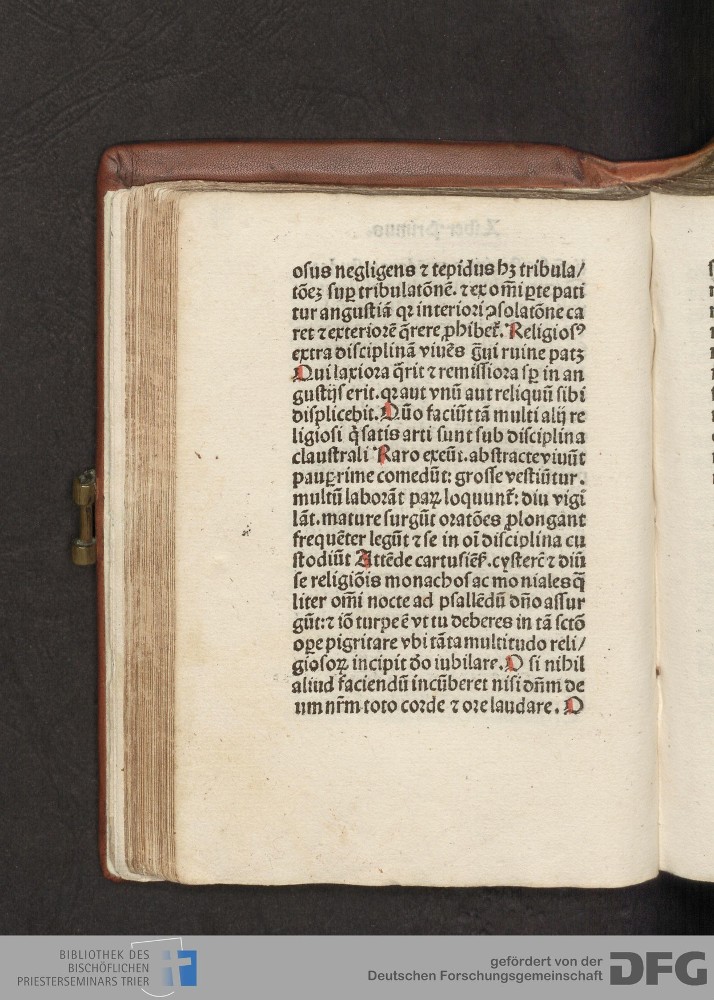 osus negligens ⁊ tepidus hꝫ tribula/
tōeꝫ suꝑ tribulatōnē. ⁊ ex om̄i ꝑte pati
tur angustiā qꝛ interiori ꝯsolatōne ca
ret ⁊ exteriorē q̄rere ꝓhibet᷑. Religiosꝰ
extra disciplinā viuēs g̈ui ruine patꝫ
Qui laxiora q̄rit ⁊ remissiora sꝑ in an
gustijs erit. qꝛ aut vnū aut reliquū sibi
displicebit. Quō faciūt tā multi alij re
ligiosi q̇ satis arti sunt sub disciplina
claustrali Raro exeūt. abstracte viuūt
pauꝑrime comedūt: grosse vestiūtur.
multū laborāt paꝝ loquunt᷑: diu vigi
lāt. mature surgūt oratōes ꝓlongant
frequēter legūt ⁊ se in oī disciplina cu
stodiūt Attēde cartusiēs. cysterc̄ ⁊ diū
se religiōis monachos ac moniales q̄
liter om̄i nocte ad psallēdū dn̄o assur
gūt: ⁊ iō turpe ē vt tu deberes in tā sctō
oꝑe pigritare vbi tāta multitudo reli/
giosoꝝ incipit do iubilare. O si nihil
aliud faciendū incūberet nisi dn̄m de
um nr̄m toto corde ⁊ ore laudare. O
BIBLIOTHEK DES
BISCHÖFLICHEN
PRIESTERSEMINARS TRIER
gefördert von der
Deutschen Forschungsgemeinschaft
DFG